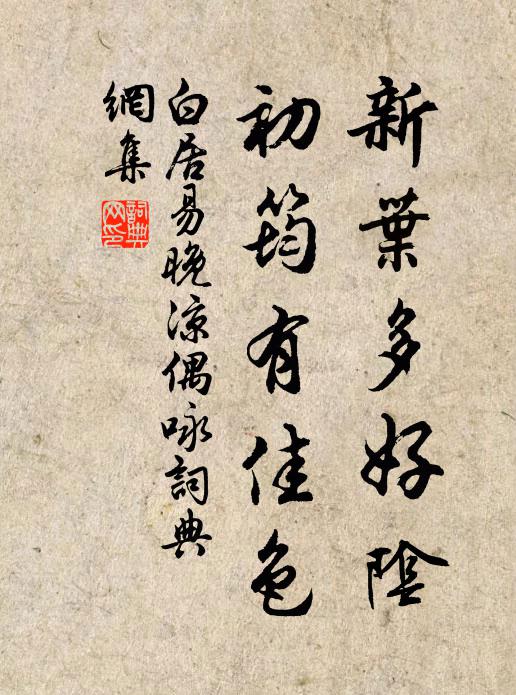 新葉多好陰
初筠有佳色
白居易晚涼偶咏詞典
網集
詞典
网印